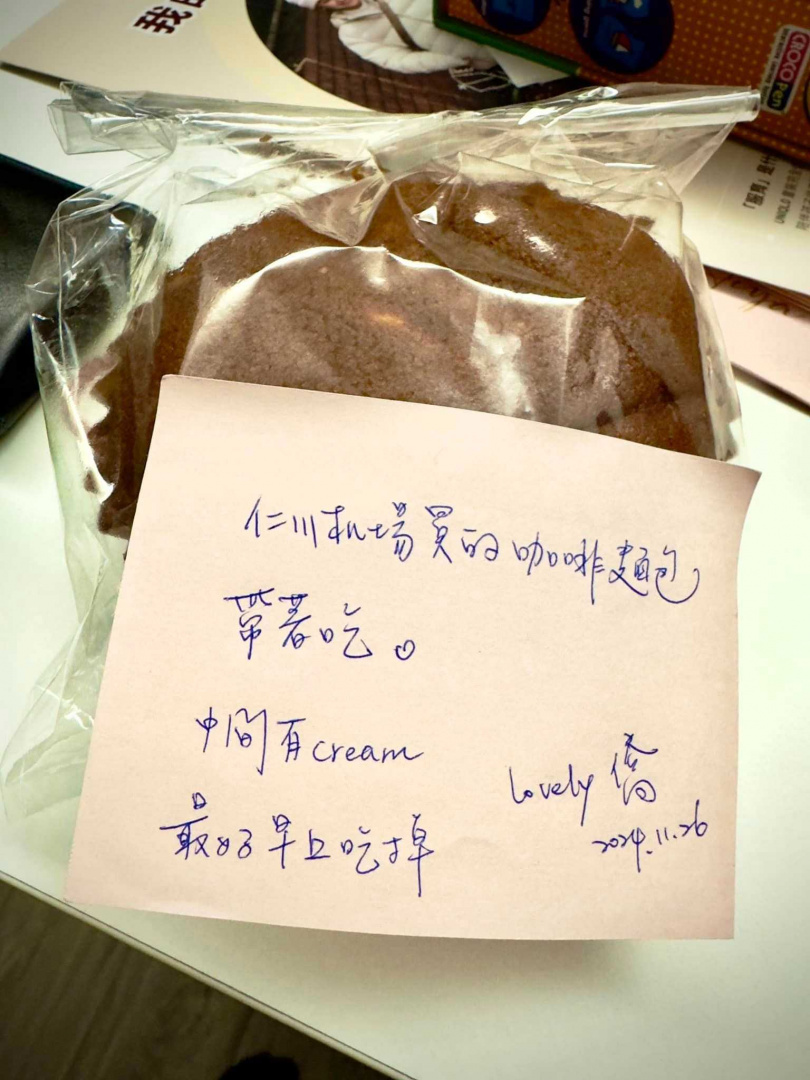 我
CROCO Pen
仁川机場買的咖啡麵包
帶著吃。
中間有cream
最好早上吃掉
Lovely 僑
2024.11.26